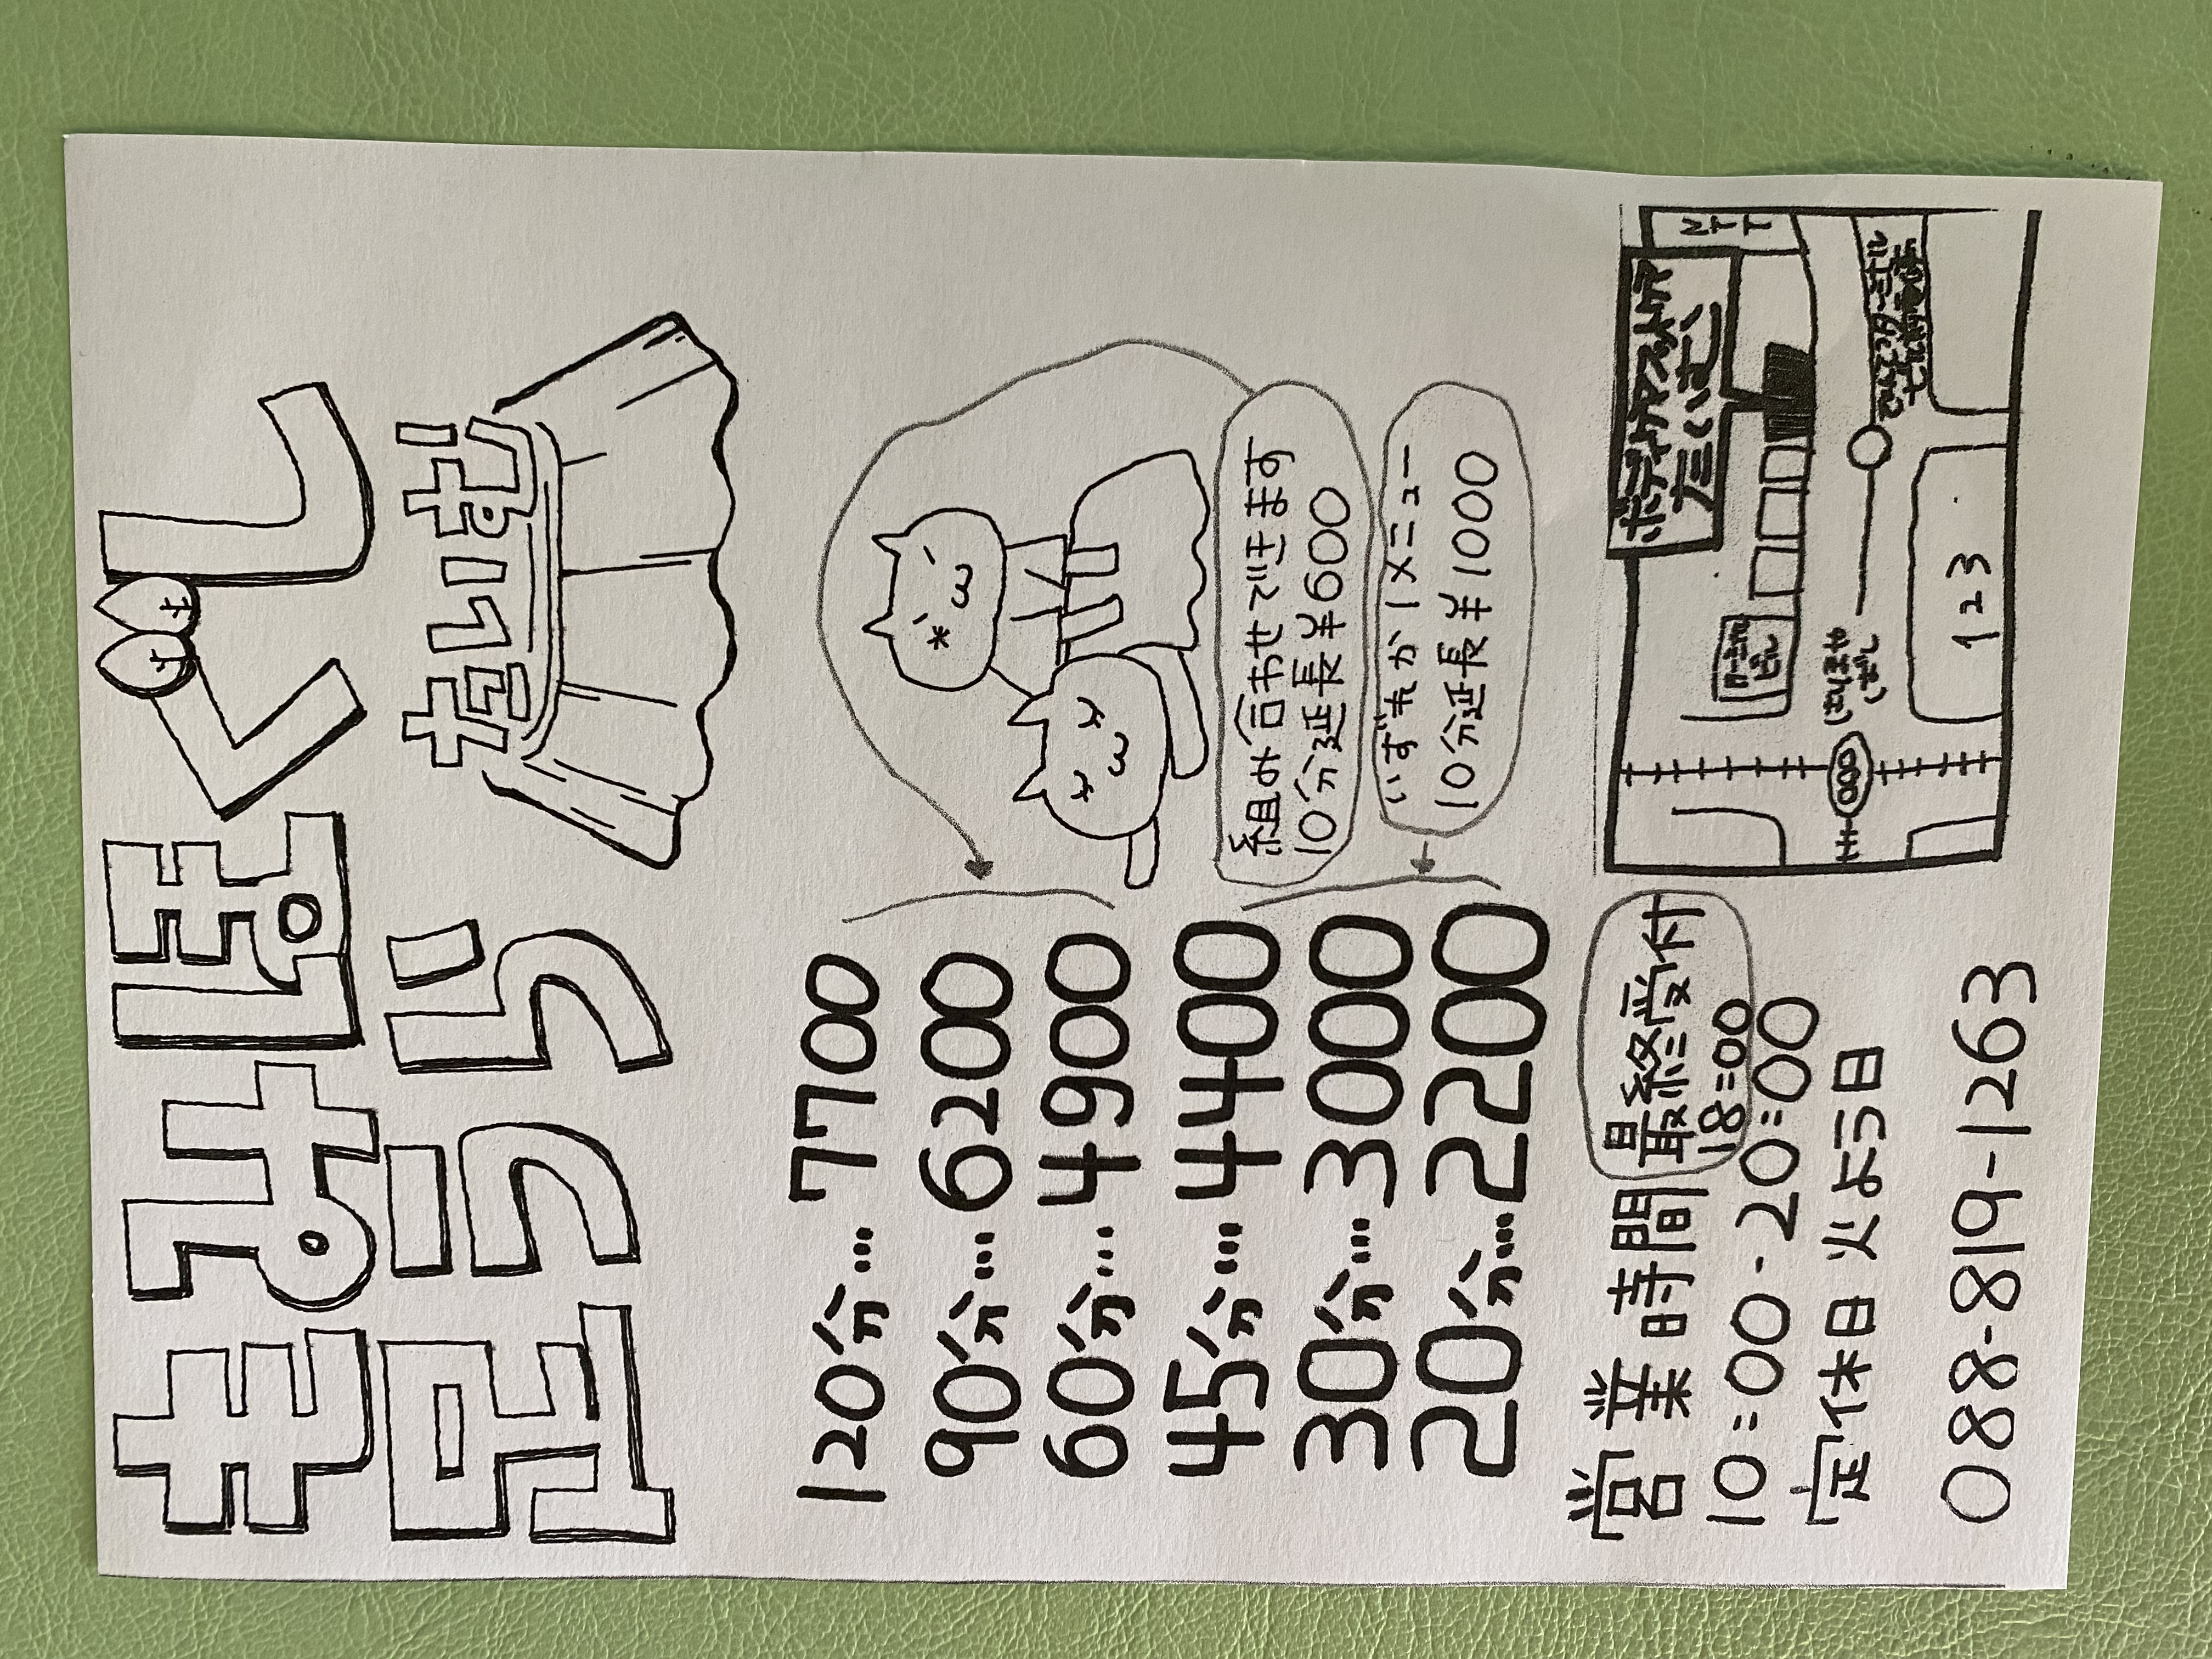 もみほぐし
足うら
120分…7700
90分…6200
60分…4900
45分…4400
30分…3000
20分…2200
組み合わせできます
10分延長¥600
いずれか1メニュー
10分延長¥1000
営業時間
最終受付
18:00
10:00-20:00
定休日 火よう日
088-819-1263
NTT
はりまや
ばし
123